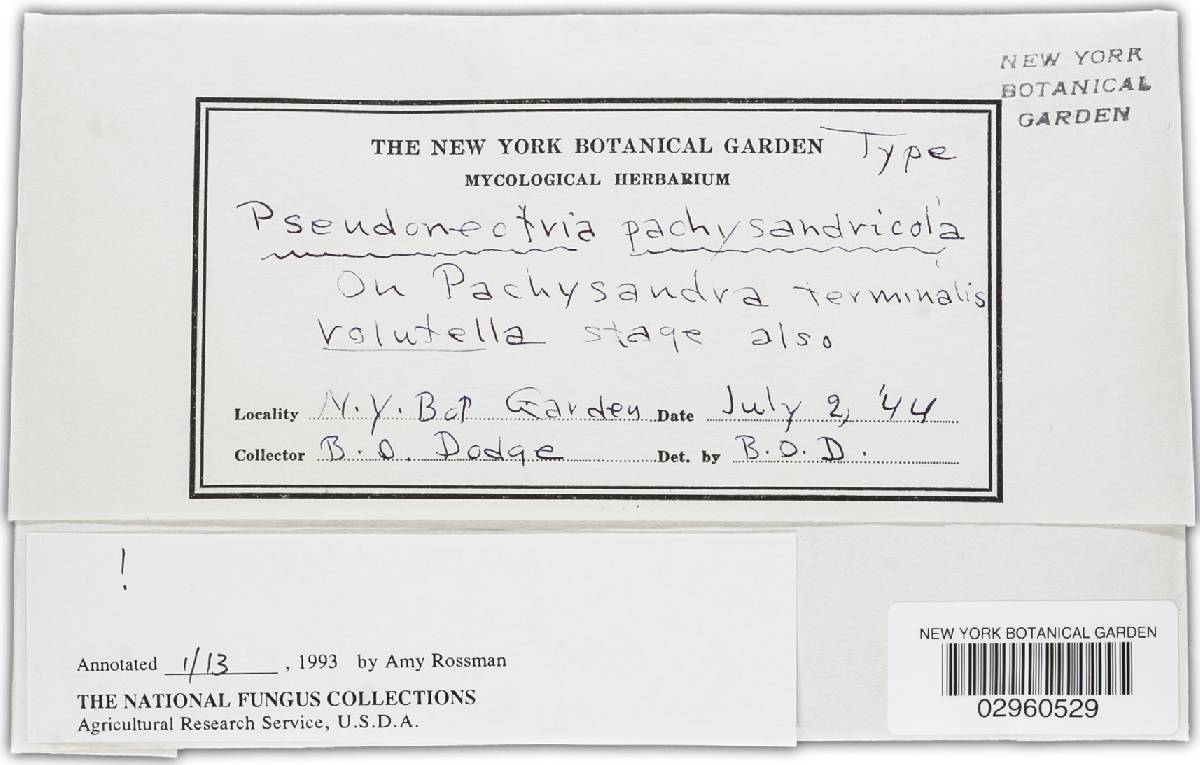 NEW YORK
BOTANICAL
GARDEN
THE NEW YORK BOTANICAL GARDEN Type
MYCOLOGICAL HERBARIUM
Pseudonectria pachysandricola
On Pachysandra terminalis
Volutella stage also
Locality N.Y. Bot Garden Date July 2, '44
Collector B.O. Dodge Det. by B.O.D.
!
Annotated 1/13, 1993 by Amy Rossman
THE NATIONAL FUNGUS COLLECTIONS
Agricultural Research Service, U.S.D.A.
NEW YORK BOTANICAL GARDEN
02960529